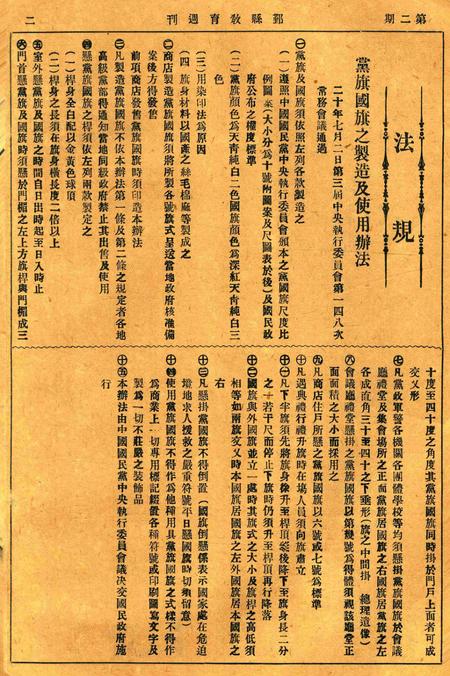 第二期
鄞縣教育週刊
二
法規
黨旗國旗之製造及使用辦法
二十年七月二日第三屆中央執行委員會第一四八次
常務會議通過
㊀黨旗及國旗須依照左列各款製造之
(一)遵照中國國民黨中央執行委員會頒布之黨國旗尺度比
例圖案(大小分為十號附圖案及尺圖表於後)及國民政
府公布之權度標準
(二)黨旗顏色為天青純白二色國旗顏色為深紅天青純白三
色
(三)用染印法為原因
(四)旗身材料以國產之絲毛棉麻等製成之
㊁商店製造黨國旗須將所製各號旗式呈送當地政府核准備
案後方得發售
前項商店發售黨國旗時須印造本辦法
㊂凡製造黨國旗不依本辦法第一條及第二條之規定者各地
高級黨部得通知當地同級政府禁止其出售及使用
㊃懸黨國旗之桿須依左列兩款製定之
(一)桿身全白配以金黃色球頂
(二)桿身之長須在旗身橫長度二倍以上
㊄室外懸黨旗及國旗之時間自日出時起至日入時止
㊅門首懸黨旗及國旗時須懸於門楣之左上方旗桿與門楣成三
十度至四十度之角度其黨旗國旗同時掛於門戶上面者可成
交叉形
㊆凡黨政軍警各機關各團體學校等均須懸掛黨國旗於會議
廳禮堂及集會場所之正面黨旗居國旗之右國旗居黨旗之左
各成直角三十至四十之下垂形(旗之中間掛 總理遺像)
㊇會議廳禮堂懸掛之黨旗國旗以第幾號為得體須視該廳堂正
面面積之大小而採用之
㊈凡商店住戶所懸之黨旗國旗以六號或七號為標準
㊉凡遇典禮行禮升旗時在場人員須向旗肅立
十一凡下半旗須先將旗身徐升至桿頂然後降下至旗身長二分
之一若干尺而停止下旗時仍須升至桿頂再行降落
十二國旗與外國旗並立一處時其旗式之大小及旗桿之高低須
相等如兩旗交叉時本國旗居國旗之左外國旗居本國旗之
右
十三凡懸掛黨國旗不得倒置(國旗倒懸係表示國家處在危迫
境地求人援救之嚴重信號平日懸國旗時切須留意)
十四使用黨國旗不得作為他種用具黨旗國旗之式樣不得作
為商業上一切專用標記經置各種符號或印刷圖寫文字及
製為一切不莊嚴之裝飾品
十五本辦法由中國國民黨中央執行委員會議決交國民政府施
行